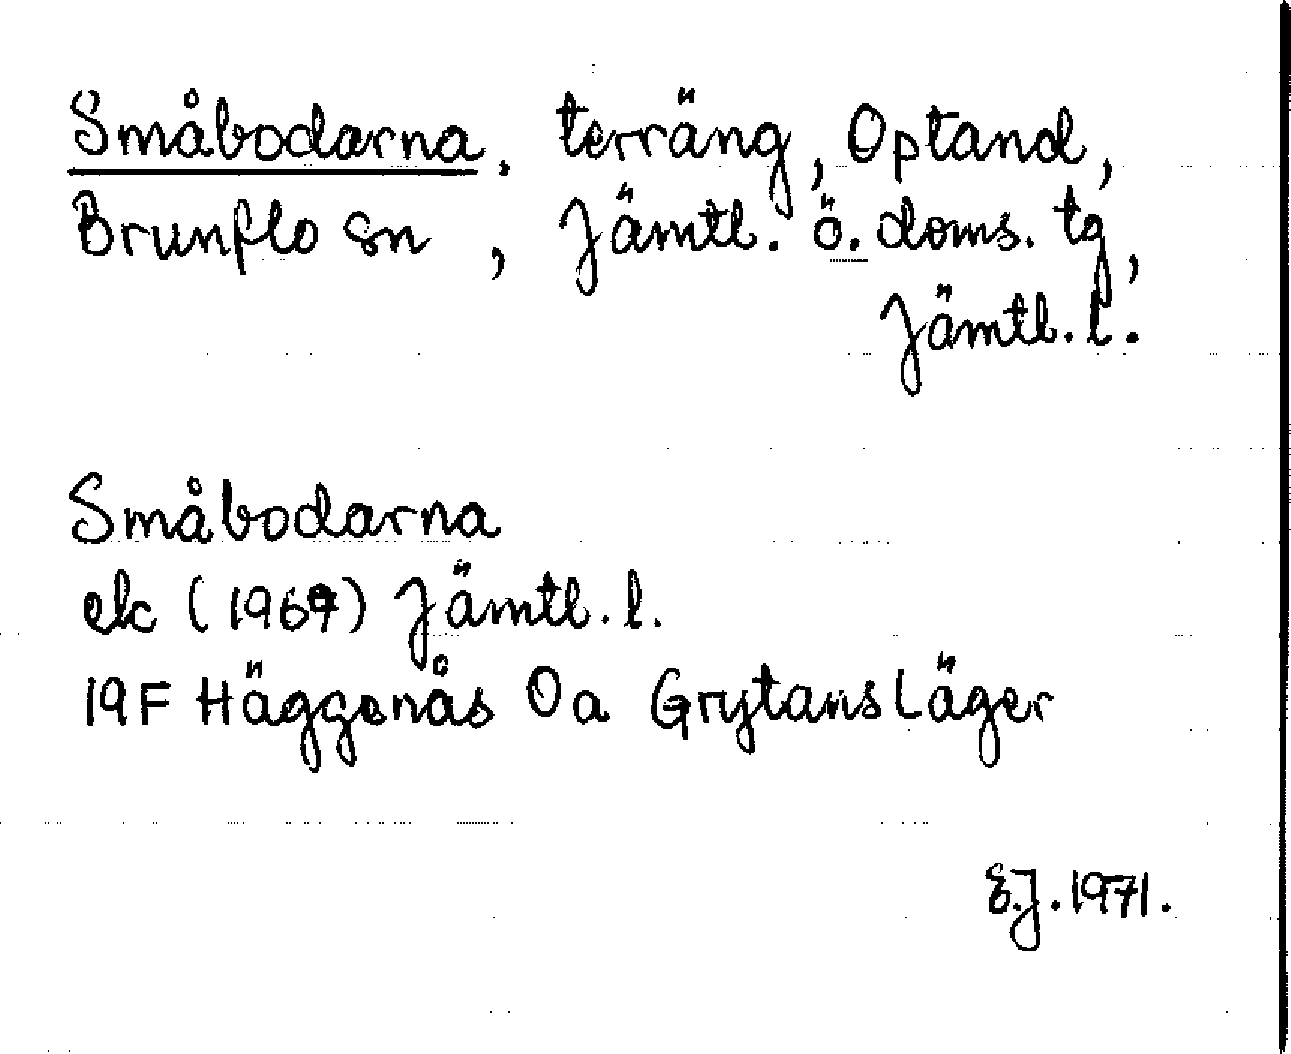 Småbodarna, terräng, Optand,
Brunflo sn, Jämtl. ö. doms. tg,
Jämtl. l.
Småbodarna
ek (1969) Jämtl. l.
19F Häggenås 0a Grytans Läger
E.J. 1971.